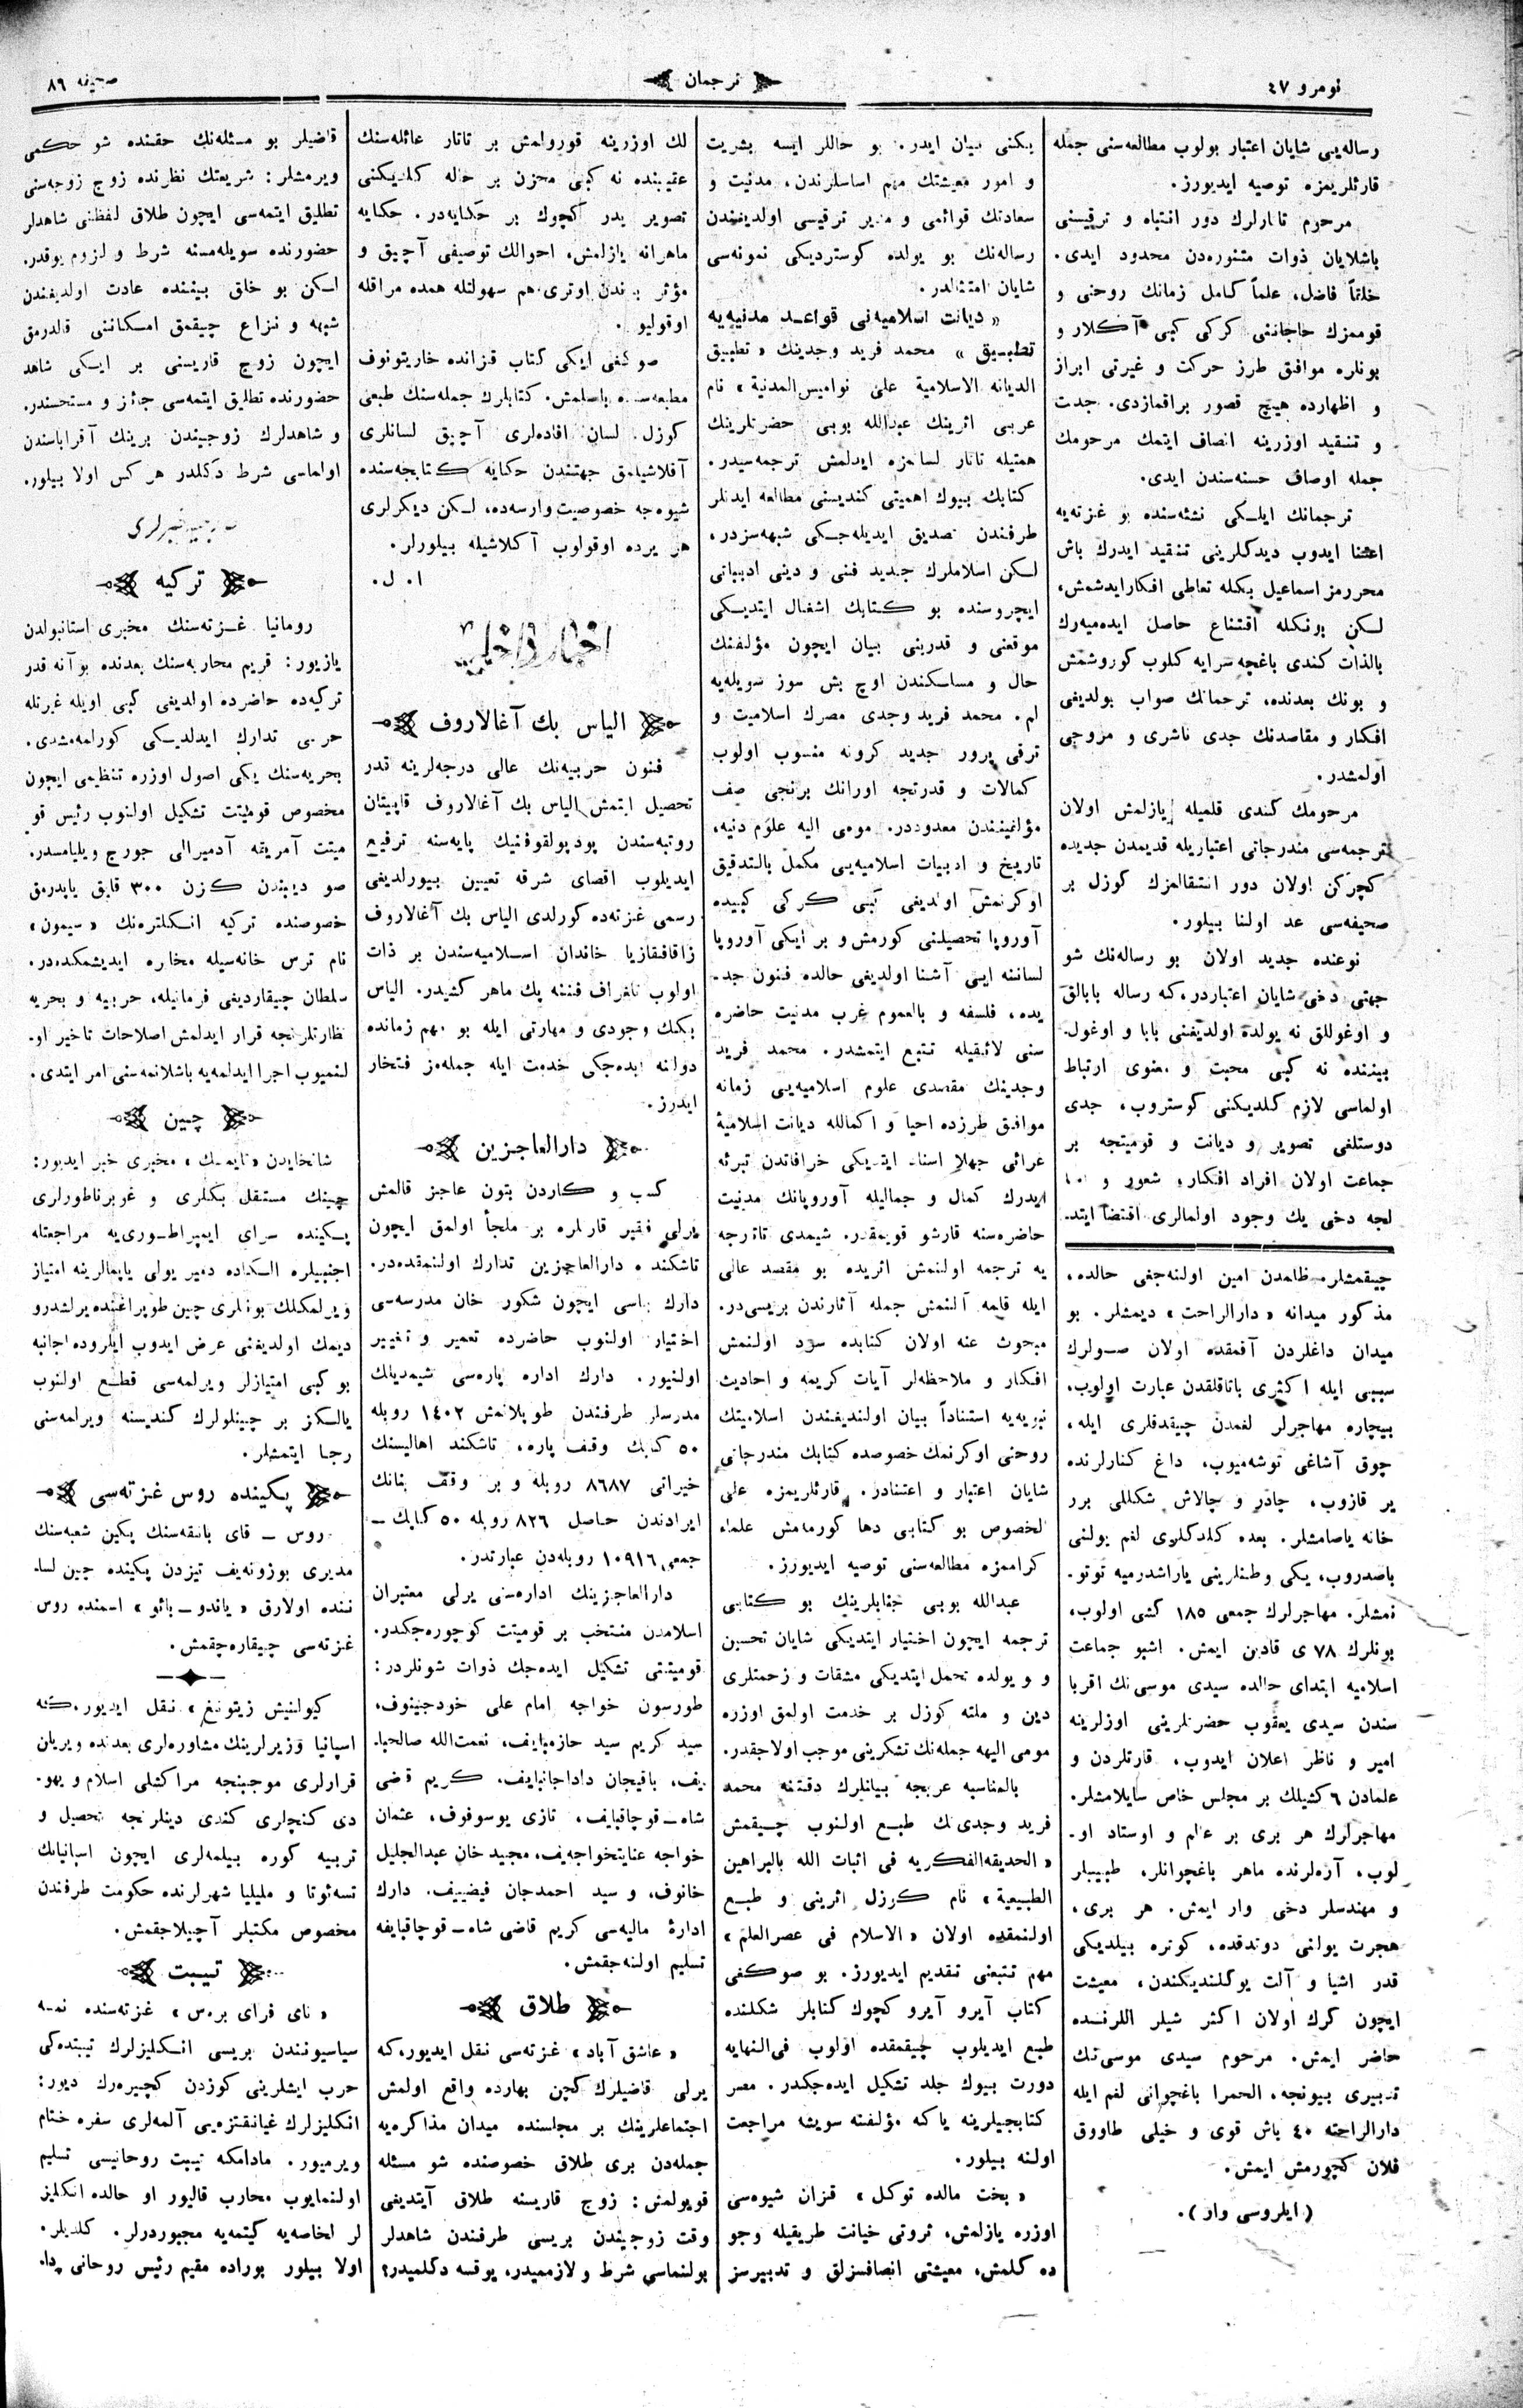 نومرو ٤٧
ترجمان
صحیفه ٨٦
رساله‌یی شایان اعتبار بولوب مطالعه‌سنی جمله
قارئلریمزه توصیه ایدیورز.
مرحوم تاتارلرك دور انتباه و ترقیسنی
باشلایان ذوات متنوره‌دن محدود ایدی.
خلقاً فاضل، علماً کامل زمانك روحنی و
قوممزك حاجاتنی کرکی کبی آکلار و
بونلره موافق طرز حرکت و غیرتی ابراز
و اظهارده هیچ قصور براقمازدی. جدت
و تنقید اوزرینه انصاف ایتمك مرحومك
جمله اوصاف حسنه‌سندن ایدی.
ترجمانك ایلکی نشئه‌سنده بو غزته‌یه
اعتنا ایدوب دیدکلرینی تنقید ایدرك باش
محررمز اسماعیل بکله تعاطی افکارایدشمش،
لکن بونکله اقتناع حاصل ایده‌میه‌رك
بالذات کندی باغچه‌سرایه کلوب کوروشمش
و بونك بعدنده، ترجمانك صواب بولدیغی
افکار و مقاصدنك جدی ناشری و مروجی
اولمشدر.
مرحومك کندی قلمیله یازلمش اولان
ترجمه‌سی مندرجاتی اعتباریله قدیمدن جدیده
کچرکن اولان دور انتقالمزك کوزل بر
صحیفه‌سی عد اولنا بیلور.
نوعنده جدید اولان بو رساله‌نك شو
جهتی دخی شایان اعتباردر،که رساله بابالق
و اوغوللق نه یولده اولدیغنی بابا و اوغول
بیننده نه کبی محبت و معنوی ارتباط
اولماسی لازم کلدیکنی کوستروب، جدی
دوستلغی تصویر و دیانت و قومیتجه بر
جماعت اولان افراد افکار، شعور و
لجه دخی یك وجود اولمالری اقتضا ایتد‌ـ
چیقمشلر. ظلمدن امین اولنه‌جغی حالده،
مذکور میدانه « دارالراحت » دیمشلر. بو
میدان داغلردن آقمقده اولان صولرك
سببی ایله اکثری باتاقلقدن عبارت اولوب،
بیچاره مهاجرلر لغمدن چیقدقلری ایله،
چوق آشاغی توشه‌میوب، داغ کنارلرنده
یر قازوب، چادر و چالاش شکللی برر
خانه یاصامشلر. بعده کلدکلری لغم یولنی
باصدروب، یکی وطنلرینی یاراشدرمیه توتو‌ـ
نمشلر. مهاجرلرك جمعی ١٨٥ کشی اولوب،
بونلرك ٧٨ ی قادین ایمش. اشبو جماعت
اسلامیه ابتدای حالده سیدی موسی‌نك اقربا
سندن سیدی یعقوب حضرتلرینی اوزلرینه
امیر و ناظر اعلان ایدوب، قارتلردن و
علمادن ٦ کشیلك بر مجلس خاص سایلامشلر.
مهاجرلرك هر بری بر عالم و اوستاد او‌ـ
لوب، آره‌لرنده ماهر باغچوانلر، طبیبلر
و مهندسلر دخی وار ایمش. هر بری،
هجرت یولنی دوندقده، کوتره بیلدیکی
قدر اشیا و آلت یوکلندیکندن، معیشت
ایچون کرك اولان اکثر شیلر اللرنده
حاضر ایمش. مرحوم سیدی موسی‌نك
تدبیری بیونجه، الحمرا باغچوانی لغم ایله
دارالراحته ٤٠ باش قوی و خیلی طاووق
فلان کچورمش ایمش.
( ایلروسی وار ).
یکنی بیان ایدر. بو حاللر ایسه بشریت
و امور معیشتك مهم اساسلرندن، مدنیت و
سعادتك قوائمی و مدیر ترقیسی اولدیغندن
رساله‌نك بو یولده کوستردیکی نمونه‌سی
شایان امتثالدر.
« دیانت اسلامیه‌نی قواعد مدنیه‌یه
تطبیق » محمد فرید وجدینك « تطبیق
الدیانه الاسلامیة علی نوامیس‌المدنیة » نام
عربی اثرینك عبدالله بوبی حضرتلرینك
همتیله تاتار لسانمزه ایدلمش ترجمه‌سیدر.
کتابك بیوك اهمیتی کندیسنی مطالعه ایدنلر
طرفندن تصدیق ایدیله‌جکی شبهه‌سزدر،
لکن اسلاملرك جدید فنی و دینی ادبیاتی
ایچروسنده بو کتابك اشغال ایتدیکی
موقعنی و قدرینی بیان ایچون مؤلفنك
حال و مسلکندن اوچ بش سوز سویله‌یه
لم. محمد فرید وجدی مصرك اسلامیت و
ترقی پرور جدید کرونه منسوب اولوب
کمالات و قدرتجه اورانك برنجی صف
مؤلفیندن معدوددر. مومی الیه علوم دنیه،
تاریخ و ادبیات اسلامیه‌یی مکمل بالتدقیق
اوکرنمش اولدیغی کبی کرکی کبیده
آوروپا تحصیلنی کورمش و بر ایکی آوروپا
لسانه ایی آشنا اولدیغی حالده فنون جد‌ـ
یده، فلسفه و بالعموم غرب مدنیت حاضره
سنی لائقیله تتبع ایتمشدر. محمد فرید
وجدینك مقصدی علوم اسلامیه‌یی زمانه
موافق طرزده احیا و اکمالله دیانت اسلامیهٔ
غرائی جهلا اسناد ایتدیکی خرافاتدن تبرئه
ایدرك کمال و جمالیله آوروپانك مدنیت
حاضره‌سنه قارشو قویمقدر. شیمدی تاتارجه
یه ترجمه اولنمش اثریده بو مقصد عالی
ایله قلمه آلنمش جمله آثارندن بریسی‌در.
مبحوث عنه اولان کتابده سرد اولنمش
افکار و ملاحظه‌لر آیات کریمه و احادیث
نبویه‌یه استناداً بیان اولندیغندن اسلامیتك
روحنی اوکرنمك خصوصده کتابك مندرجاتی
شایان اعتبار و اعتنادر. قارئلریمزه علی
الخصوص بو کتابی دها کورمامش علماء
کراممزه مطالعه‌سنی توصیه ایدیورز.
عبدالله بوبی جنابلرینك بو کتابی
ترجمه ایچون اختیار ایتدیکی شایان تحسین
و و یولده تحمل ایتدیکی مشقات و زحمتلری
دین و ملته کوزل بر خدمت اولمق اوزره
مومی الیهه جمله‌نك تشکرینی موجب اولاجقدر.
بالمناسبه عربجه بیانلرك دقتنه محمد
فرید وجدی‌نك طبع اولنوب چیقمش
« الحدیقه‌الفکریه فی اثبات الله بالبراهین
الطبیعیة » نام کوزل اثرینی و طبع
اولنمقده اولان « الاسلام فی عصرالعلم »
مهم تتبعنی تقدیم ایدیورز. بو صوکغی
کتاب آیرو آیرو کچوك کتابلر شکلنده
طبع ایدیلوب چیقمقده اولوب فی‌النهایه
دورت بیوك جلد تشکیل ایده‌جکدر. مصر
کتابجیلرینه یاکه مؤلفنه سویشه مراجعت
اولنه بیلور.
« بخت مالده توکل » قزان شیوه‌سی
اوزره یازلمش، ثروتی خیانت طریقیله وجو
ده کلمش، معیشتی انصافسزلق و تدبیرسز
لك اوزرینه قورولمش بر تاتار عائله‌سنك
عقیبنده نه کبی محزن بر حاله کلدیکنی
تصویر یدر کچوك بر حکایه‌در. حکایه
ماهرانه یازلمش، احوالك توصیفی آچیق و
مؤثر بوندن اوتری،هم سهولتله همده مراقله
اوقولیو.
صوکغی ایکی کتاب قزانده خاریتونوف
مطبعه‌سنده باصلمش. کتابلرك جمله‌سنك طبعی
کوزل. لسان افاده‌لری آچیق لسانلری
آقلاشیلمق جهتندن حکایه کتابجه‌سنده
شیوه‌جه خصوصیت وارسه‌ده، لکن دیکرلری
هر یرده اوقولوب آکلاشیله بیلورلر.
ا. ل.
اخبار داخلیه
الیاس بك آغالاروف
فنون حربیه‌نك عالی درجه‌لرینه قدر
تحصیل ایتمش الیاس بك آغالاروف قاپیتان
روتبه‌سندن پودپولقوفنیك پایه‌سنه ترفیع
ایدیلوب اقصای شرقه تعیین بیورلدیغی
رسمی غزته‌ده کورلدی الیاس بك آغالاروف
زاقافقازیا خاندان اسلامیه‌سندن بر ذات
اولوب تلغراف فننه پك ماهر کشیدر. الیاس
بکك وجودی و مهارتی ایله بو مهم زمانده
دولته ایده‌جکی خدمت ایله جمله‌مز فتخار
ایدرز.
دارالعاجزین
کسب و کاردن بتون عاجز قالمش
یرلی فقیر قارتلره بر ملجأ اولمق ایچون
تاشکنده دارالعاجزین تدارك اولنمقده‌در.
دارك بناسی ایچون شکور خان مدرسه‌سی
اختیار اولنوب حاضرده تعمیر و تغییر
اولنیور. دارك اداره پاره‌سی شیمدیلك
مدرسلر طرفندن طوپلانمش ١٤٠٢ روبله
٥٠ کاپك وقف پاره، تاشکند اهالیسنك
خیراتی ٨٦٨٧ روبله و بر وقف بنانك
ایرادندن حاصل ٨٢٦ روبله ٥٠ کاپك ــ
جمعی ١٠٩١٦ روبله‌دن عبارتدر.
دارالعاجزینك اداره‌سنی یرلی معتبران
اسلامدن منتخب بر قومیتت کوچوره‌جکدر.
قومیتتی تشکیل ایده‌جك ذوات شونلردر:
طورسون خواجه امام علی خودجینوف،
سید کریم سید حازم‌بایف، نعمت‌الله صالحبا‌ـ
یف، باقیجان داداجانبایف، کریم قاضی
شاه ــ قوچاقبایف، تازی یوسوفوف، عثمان
خواجه عنایتخواجه‌یف، مجید خان عبدالجلیل
خانوف، و سید احمدجان فیضییف. دارك
ادارهٔ مالیه‌سی کریم قاضی شاه ــ قوچاقبایفه
تسلیم اولنه‌جقمش.
طلاق
« عاشق آباد » غزته‌سی نقل ایدیور،که
یرلی قاضیلرك کچن بهارده واقع اولمش
اجتماعلرینك بر مجلسنده میدان مذاکره‌یه
جمله‌دن بری طلاق خصوصنده شو مسئله
قویولمش: زوج قاریسنه طلاق آیتدیغی
وقت زوجیندن بریسی طرفندن شاهدلر
بولنماسی شرط و لازممیدر، یوقسه دکلمیدر؟
قاضیلر بو مسئله‌نك حقنده شو حکمی
ویرمشلر: شریعتك نظرنده زوج زوجه‌سنی
تطلیق ایتمه‌سی ایچون طلاق لفظنی شاهدلر
حضورنده سویله‌مسنه شرط و لزوم یوقدر.
لکن بو خلق بیننده عادت اولدیغندن
شبهه و نزاع چیقمق امکاننی قالدرمق
ایچون زوج قاریسنی بر ایکی شاهد
حضورنده تطلیق ایتمه‌سی جائز و مستحسندر.
و شاهدلرك زوجیندن برینك آقرباسندن
اولماسی شرط دکلدر هر کس اولا بیلور.
ترکیه
رومانیا غزته‌سنك مخبری استانبولدن
یازیور: قریم محاربه‌سنك بعدنده بو آنه قدر
ترکیه‌ده حاضرده اولدیغی کبی اویله غیرتله
حربی تدارك ایدلدیکی کورلمه‌مشدی.
بحریه‌سنك یکی اصول اوزره تنظیمی ایچون
مخصوص قومیتت تشکیل اولنوب رئیس قو
میتت آمریقه آدمیرالی جورج ویلیامسدر.
صو دیبندن کزن ٣٠٠ قایق یاپدرمق
خصوصنده ترکیه انکلتره‌نك « سیمون »
نام ترس خانه‌سیله مخابره ایدیشمکده‌در.
سلطان چیقاردیغی فرمانیله، حربیه و بحریه
نظارتلرنجه قرار ایدلمش اصلاحات تاخیر او‌ـ
لنمیوب اجرا ایدلمه‌یه باشلانمه‌سنی امر ایتدی.
چین
شانخایدن « تایمـك » مخبری خبر ایدیور:
چینك مستقل بکلری و غوبرناطورلری
پکینده سرای ایمپراطوری‌یه مراجعتله
اجنبیلره الکاده دمیر یولی یاپمالرینه امتیاز
ویرلمکلك بونلری چین طوپراغنده یرلشدرو
دیمك اولدیغنی عرض ایدوب ایلروده اجانبه
بو کبی امتیازلر ویرلمه‌سی قطع اولنوب
یالکز بر چینلولرك کندیسنه ویرلمه‌سنی
رجا ایتمشلر.
پکینده روس غزته‌سی
روس ــ قتای بانقه‌سنك پکین شعبه‌سنك
مدیری پوزونه‌یف تیزدن پکینده چین لسا‌ـ
ننده اولارق « یاندو ــ بائو » اسمنده روس
غزته‌سی چیقاره‌چقمش.
کیولنیش زیتونغ » نقل ایدیور،که
اسپانیا وزیرلرینك مشاوره‌لری بعدنده ویریلن
قرارلری موجبنجه مراکشلی اسلام و یهو‌ـ
دی کنچلری کندی دینلرنجه تحصیل و
تربیه کوره بیلمه‌لری ایچون اسپانیانك
تسه‌ئوتا و ملیلیا شهرلرنده حکومت طرفندن
مخصوص مکتبلر آچیلاجقمش.
تیبت
« نای فرای پره‌س » غزته‌سنده نمسه
سیاسیوننندن بریسی انکلیزلرك تیبتده‌کی
حرب ایشلرینی کوزدن کچیره‌رك دیور:
انکلیزلرك غیانقتزه‌یی آلمه‌لری سفره ختام
ویرمیور. مادامکه تیبت روحانیسی تسلیم
اولنمایوب محارب قالیور او حالده انکلیز
لر لخاصه‌یه کیتمه‌یه مجبوردرلر. کلدیلر.
اولا بیلور بوراده مقیم رئیس روحانی دالا